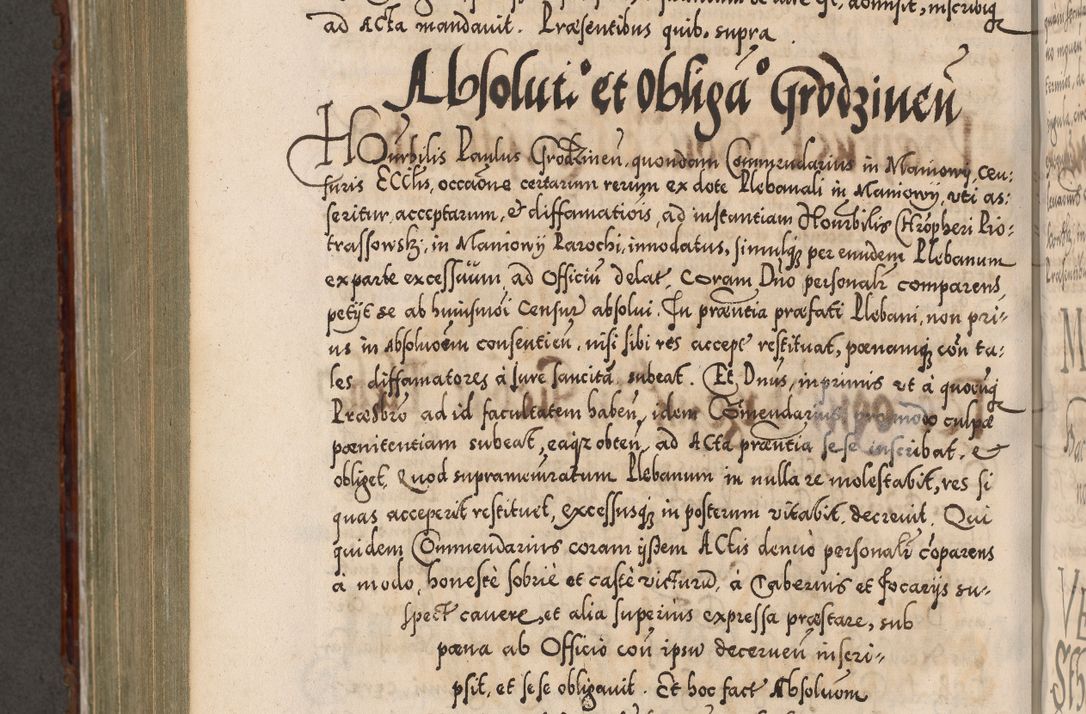 ad Acta mandauit. Præsentibus quib, supra
Absolutio et Obligão Grodzinen
HOnrbilis Paulus Grodzinen, quondam Commendarius in Maniowy, cen:
suris Ecclis, occaõne certarum rerum ex dote Plebanali in Maniowy, vti as:
seritur, acceptarum, & diffamatiõis, ad instantiam Honrbilis Chrõpheri Pio:
trassowski, in Maniowy Parochi, innodatus, simulq per eundem Plebanum
ex parte excessuum, ad Officiũ delat, Coram Dño personalr comparens
petijt se ab huiusmõi Censur absolui. In præntia præfati Plebani, non pri-
us in Absoluõem consentieñ, nisi sibi res accept restituat, pœnamq con ta-
les diffamatores à Jure sancitã, subeat. Et Dnus, inprimis vt à quocuq
Præsbrõ ad id facultatem habeñ, idem Cõmendarius pro modo culpæ
pœnitentiam subeat, eaq obteñ, ad Acta præntia sese inscribat, &
obliget, Quod suprameũratum Plebanum in nulla re molestabit, res si
quas acceperit restituet, excessusq in posterum vitabit, decreuit. Qui
quidem Commendarius coram ijsdem Actis denuò personalr cõparens
à modo, honestè sobriè et castè victurũ, à Cabernis et focarijs su-
spect cauere, et alia superius expressa præstare, sub
pœna ab Officio con ipsu decerneñ inscri-
psit, et sese obligauit. Et hoc fact Absoluõm